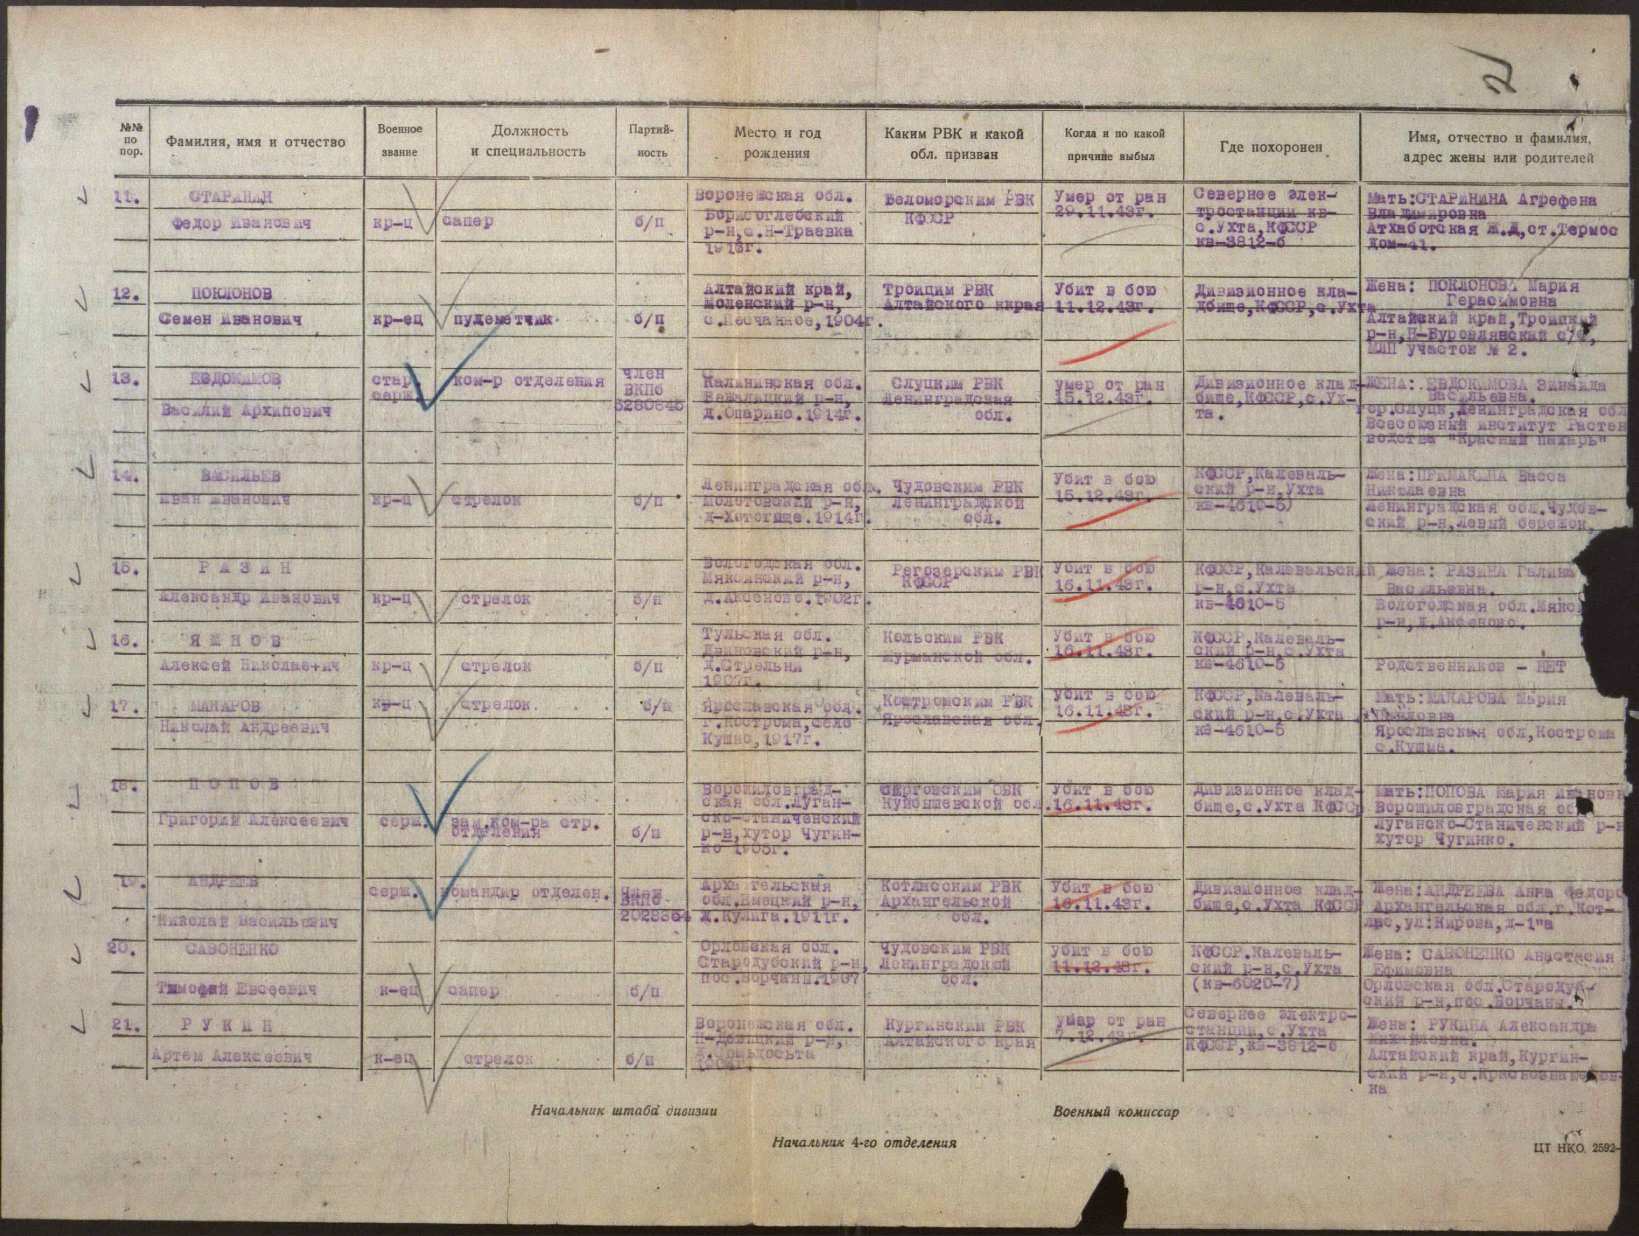 №№ по пор.
Фамилия, имя и отчество
Военное звание
Должность и специальность
Партий-ность
Место и год рождения
Каким РВК и какой обл. призван
Когда и по какой причине выбыл
Где похоронен
Имя, отчество и фамилия, адрес жены или родителей
11.
СТАРИНИН
Федор Иванович
кр-ц
сапер
б/п
Воронежская обл.
Борисоглебский
р-н,с.Н-Траевка
1918г.
Беломорским РВК
КФССР
Умер от ран
29.11.43г.
Севернее элек-
тростанции кв-
с.Ухта,КФССР
кв-3812-б
Мать:СТАРИНИНА Агрефена
Владимировна
Атхаботская Ж.Д,ст.Термос
дом-41.
12.
ПОКЛОНОВ
Семен Иванович
кр-ец
пулеметчик
б/п
Алтайский край,
с.Песчанное,1904г.
Троицим РВК
Алтайского ккрая
Убит в бою
11.12.43г.
Дивизионное кла-
дбище,КФССР,с.Ухта
Жена: ПОКЛОНОВА Мария
Герасимовна
Алтайский край,Троицкий
р-н,Н-Буровлянский с/с,
МИП участок № 2.
13.
ЕВДОКИМОВ
Василий Архипович
стар.
серж.
ком-р отделения
член
ВКПб
Калининская обл.
р-н,
д.Опарино.1914г.
Слуцким РВК
Ленинградская
обл.
умер от ран
15.12.43г.
Дивизионное клад-
бище,КФССР,с.Ух-
та.
ЖЕНА: ЕВДОКИМОВА Зинаида
Васильевна.
гор.Слуцк,Ленинградская обл
Всесоюзный институт Растен
водства "Красный пахарь"
14.
ВАСИЛЬЕВ
Иван Иванович
кр-ц
стрелок
б/п
Ленинградская обл.
Молотовский р-н,
1914г.
Чудовским РВК
Ленинградской
обл.
Убит в бою
15.12.43г.
КФССР,Калеваль-
ский р-н,Ухта
кв-4610-5)
Жена:ПРИМАКИНА Васса
Николаевна
Ленинградская обл.Чудов-
ский р-н,левый бережок.
15.
Р А З И Н
Александр Иванович
кр-ц
стрелок
б/п
Вологодская обл.
Мяксинский р-н,
д.Аксеново.1902г.
Регозерским РВК
КФССР
Убит в бою
16.11.43г.
КФССР,Калевальский
р-н,с.Ухта
кв-4610-5
Жена: РАЗИНА Галина
Васильевна.
Вологодская обл.Мякс
р-н,д.Аксеново.
16.
Я Ш Н О В
Алексей Николаевич
кр-ц
стрелок
б/п
Тульская обл.
р-н,
д.Стрельни
Кольским РВК
Мурманской обл.
Убит в бою
16.11.43г.
КФССР,Калеваль-
ский р-н,с.Ухта
кв-4610-5
Родственников - НЕТ
17.
МАКАРОВ
Николай Андреевич
кр-ц
стрелок.
б/п
Ярославская обл.
г.Кострома,село
1917г.
Костромским РВК
Ярославская обл.
Убит в бою
16.11.43г.
КФССР,Калеваль-
ский р-н,с.Ухта
кв-4610-5
Мать:МАКАРОВА Мария
Ярославская обл,Кострома
с.Кушма.
18.
П О П О В
Григорий Алексеевич
серж.
зам.ком-ра стр.
отделения
б/п
Ворошиловград-
ская обл.Луган-
ско-Станиченский
р-н,хутор Чугин-
ко
РВК
Куйбышевской обл.
Убит в бою
16.11.43г.
Дивизионное клад-
бище,с.Ухта КФССР
Мать:ПОПОВА Мария Ивановн
Ворошиловградская об
Лугански-Станиченский р-н
хутор Чугинко.
19.
АНДРЕЕВ
Николай Васильевич
серж.
командир отделен.
Член
ВКПб
Архангельския
обл.Емецкий р-н,
д.Кулига.1911г.
Котласским РВК
Архангельской
обл.
Убит в бою
16.11.43г.
Дивизионное клад-
бище,с.Ухта КФССР
Жена:АНДРЕЕВА Анна Федоро
Архангельская обл.г.Кот-
лас,ул:Кирова,д-1"а
20.
САВОНЕНКО
Тимофей Евсеевич
к-ец
сапер
б/п
Орловская обл.
Стародубский р-н,
пос.Борчаны.1907
Чудовским РВК
Ленинградской
обл.
Убит в бою
11.12.43г.
КФССР,Калеваль-
ский р-н,с.Ухта
(кв-6020-7)
Жена: САВОНЕНКО Анастасия
Ефимовна
Орловская обл.Староду-
ский р-н,пос.Борчаны.
21.
Р У К И Н
Артем Алексеевич
к-ец
стрелок
б/п
Воронежская обл.
р-н,
Кургинским РВК
Алтайского края
умер от ран
7.12.43г.
Севернее электро-
станции,с.Ухта
КФССР,кв-3812-б
Жена: РУКИНА Александра
Михайловна.
Алтайский край,Кургин-
ский р-н,
на
Начальник штаба дивизии
Военный комиссар
Начальник 4-го отделения
ЦТ НКО. 2592-